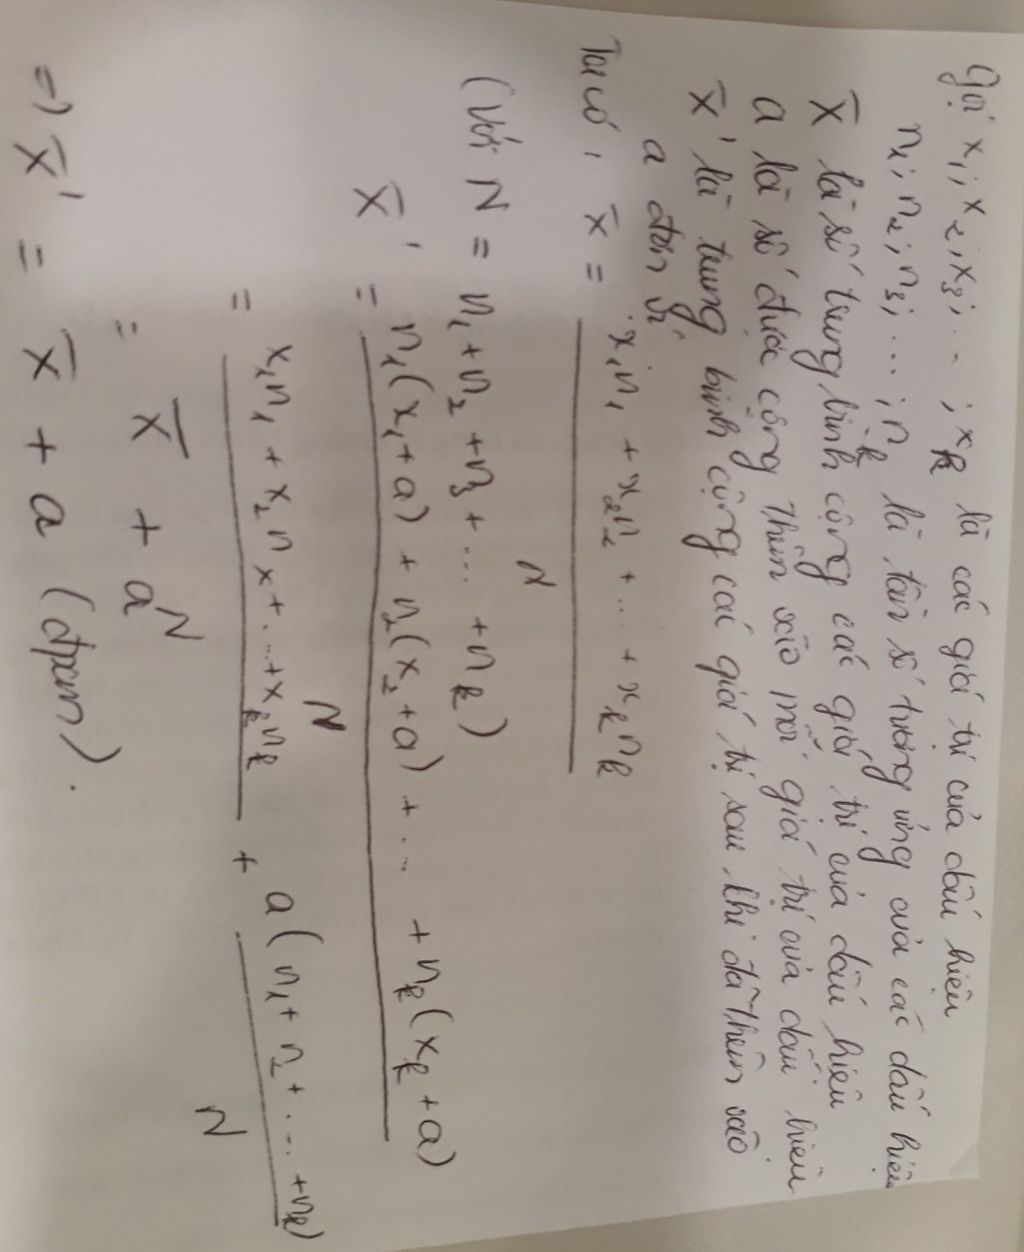 Gọi x₁; x₂; x₃; ... ; xₖ là các giá trị của dấu hiệu
n₁; n₂; n₃; ... ; nₖ là tần số tương ứng của các dấu hiệu
x̄ là số trung bình cộng các giá trị của dấu hiệu
a là số được cộng thêm vào mỗi giá trị của dấu hiệu
x̄' là trung bình cộng các giá trị sau khi đã thêm vào
a đơn vị
Ta có, x̄ = x₁n₁ + x₂n₂ + ... + xₖnₖ
N
(Với N = n₁ + n₂ + n₃ + ... + nₖ)
x̄' = n₁(x₁ + a) + n₂(x₂ + a) + ... + nₖ(xₖ + a)
N
= x₁n₁ + x₂n x + ... + xₖnₖ + a(n₁ + n₂ + ... + nₖ)
N N
= x̄ + a
=) x̄' = x̄ + a (đpcm).